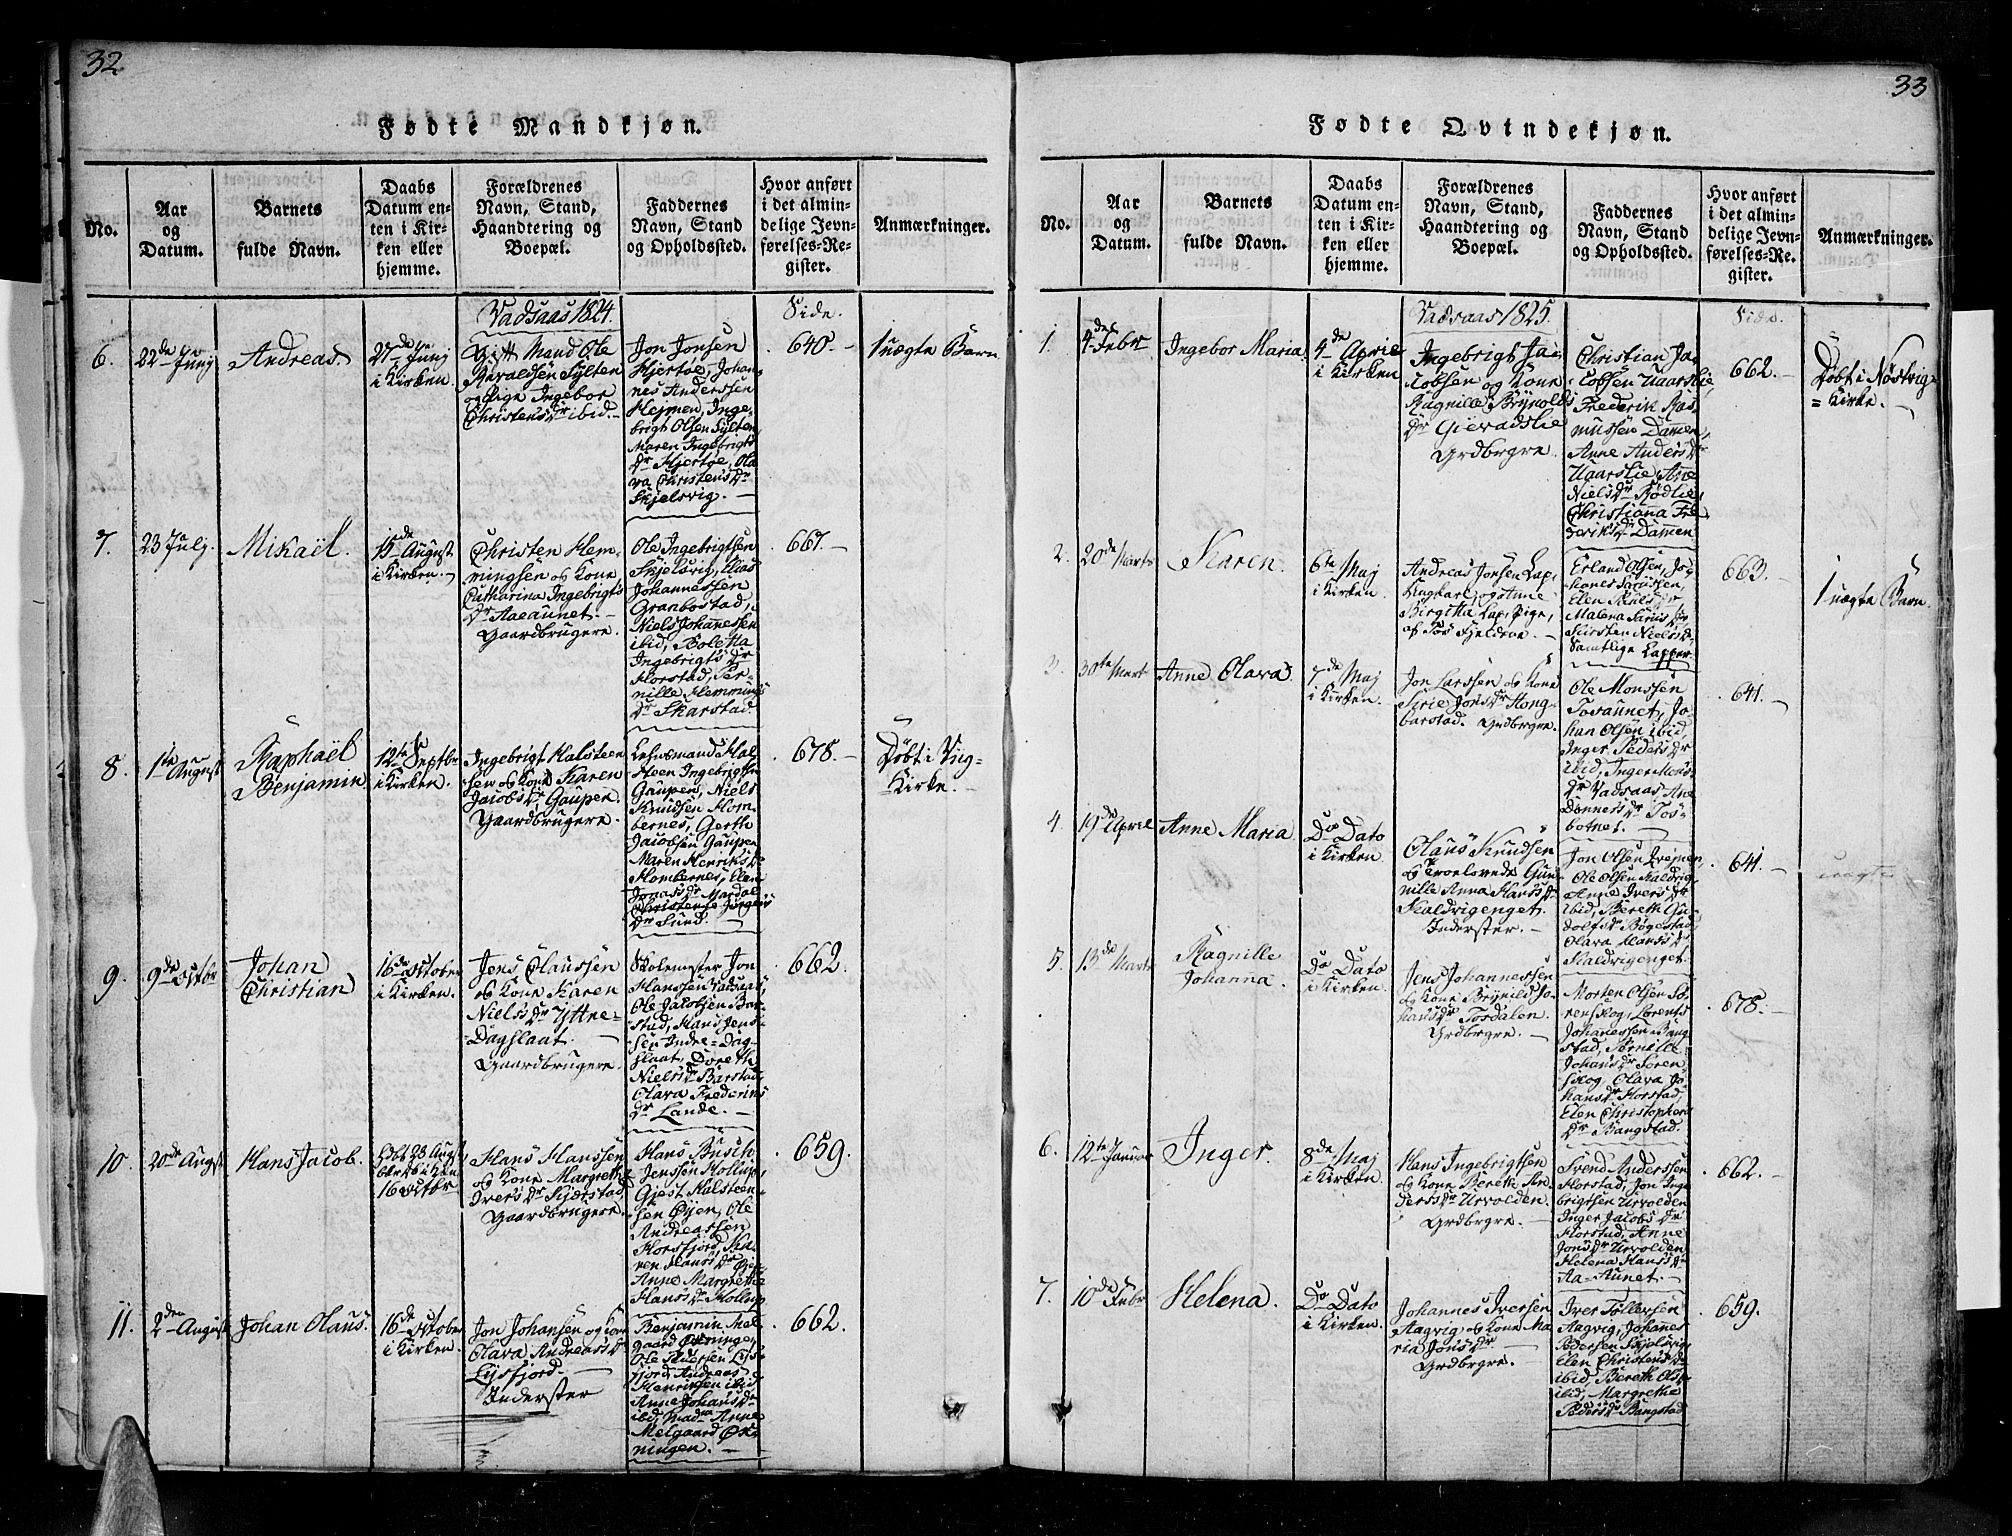 32
Fødte Mandkjøn.
No.
Aar
og
Datum.
Barnets
fulde Navn.
Daabs
Datum en-
ten i Kir-
ken eller
hjemme.
Forældrenes
Navn, Stand,
Haandtering og
Boepæl.
Faddernes
Navn, Stand
og Opholdssted.
Hvor anført
i det almin-
delige Jevn-
førelses-Re-
gister.
Anmærkninger.
Vadsaas 1824.
Side.
6.
22de Junj
Andreas.
27de Junj
i Kirken.
Gift Mand Ole
Sylten
og Pige Ingebor
Christensdr ibid.
Jon Jonsen
Hjertøe, Johan-
nes Anderssen
Hejmen, Inge-
brigt Olsen Sylten,
Maren Ingebrigts
dr Hjertøe, Ola-
va Christensdr
Skjelsvig.
640.
1 uægte Barn
7.
23 Julj.
Mikaël.
15de August
i Kirken.
Christen Hem-
mingsen og Kone
Catharina Ingebrigts
dr Aaeaunet.
Gaardbrugere.
Ole Ingebrigtsen
Skjelsvig, Elias
Johannessen
Granbostad,
Niels Johannessen
ibid, Boletta
Ingebrigtsdr
Horstad, Per-
nille Hemmings
dr Skarstad.
667.
8.
1te August
Raphaël
Benjamin
12te Septbr
i Kirken.
Ingebrigt Halsteen-
sen og Kone Karen
Jacobsdr Gaupen.
Gaardbrugere.
Lehnsmand Hal-
steen Ingebrigtsen
Gaupen, Niels
Knudsen Hom-
bernes, Gerth
Jacobsen Gaupen,
Maren Henriksdr
Hombernes, Elen
Jonasdr Mardal
Christense Jørgens
dr Sund.
678.
Døbt i Vig-
Kirke.
9.
9de Octbr
Johan
Christian
16de October
i Kirken.
Jens Olaussen
og Kone Karen
Nielsdr Yttre-
Dagslaat.
Gaardbrugere.
Skolemester Jon
Hanssen Vadsaas,
Ole Jacobsen Bar-
stad, Hans Jens-
sen Indre-Dag-
slaat, Doreth
Nielsdr Barstad,
Olava Frederiks
dr Lande.
662.
10.
20de Augst
Hans Jacob.
16 Octbr
Hans Hanssen
og Kone Margrethe
Iversdr Kjætstad,
Gaardbrugere.
Hans Busch
Jenssen Hollup,
Gjest Halsteen-
sen Øyen, Ole
Andreassen
Horsfjord, Ka-
ren Hansdr
Anne Margrethe
Hansdr Hollup
659.
11.
2den August
Johan Olaus.
16de October
i Kirken.
Jon Johansen og Kone
Olava Andreasdr
Lysfjord
Inderster
Benjamin Mel-
gaard
Ole Pedersen Lys-
fjord, Andreas
Henriksen ibid
Anne Johansdr
ibid, Madm Anne
Melgaard Øk-
ningen.
662.
33
Fødte Qvindekjøn.
No.
Aar
og
Datum.
Barnets
fulde Navn.
Daabs
Datum en-
ten i Kir-
ken eller
hjemme.
Forældrenes
Navn, Stand,
Haandtering og
Boepæl.
Faddernes
Navn, Stand
og Opholdssted.
Hvor anført
i det almin-
delige Jevn-
førelses-Re-
gister.
Anmærkninger.
Vadsaas 1825.
Side.
1.
4de Febr
Ingebor Maria.
4de April
i Kirken
Ingebrigt Ja-
cobsen og Kone
Ragnille Brynolds
dr Gieradslie
Grdbrgre.
Christian Ja-
cobsen Haarslie,
Frederik Ras-
mussen Dammen,
Anne Andersdr
Haarslie, Ane
Nielsdr Rødlie,
Christiana Fre-
deriksdr Dammen
662.
Døbt i Nøstvig-
Kirke.
2.
20de Marts
Karen.
6te Maj
i Kirken.
Andreas Jonsen Lap,
Ungkarl, og
Birgitha Lap, Pige,
af Tos Fjeldene.
Erland Olsen, Jo-
hanes Sariussen,
Elen
Malena Sariusdr
Kirsten Nielsdr
Samtlige Lapper.
663.
1 uægte Barn.
3.
30te Marts
Anne Olava
7de Maj
i Kirken.
Jon Larssen og Kone
Sirie Jonsdr Hong-
barstad. Grdbrgre.
Ole Monssen
Tosaunet, Jo-
han Olsen ibid,
Inger Pedersdr
ibid, Inger Mons-
dr Vadsaas, Ane
Dønnesdr Tos-
botnet.
641.
4.
19de April
Anne Maria.
Do Dato
i Kirken.
Olaus Knudsen
og Troelovede Gun-
nille Anna Hansdr
Kaldvigenget.
Inderster.
Jon Olsen
Ole Olsen Kaldvig,
Anne Iversdr
ibid, Bereth Gu-
dolfsdr Bøgestad,
Olava Hansdr
Kaldvigenget.
641.
uægte
5.
13de Marts
Ragnille
Johanna.
Do Dato
i Kirken.
Jens Johannessen
og Kone Brynild Jo-
hansdr Tosdalen.
Grdbrgre.
Morten Olsen So-
renskog, Lorents
Johanessen Bang-
stad, Pernille
Johansdr Soren-
skog, Olava Jo-
hansdr Horstad,
Elen Christophers
dr Bangstad.
678.
6.
12te Januar
Inger.
8de Maj
i Kirken.
Hans Ingebrigtsen
og Kone Bereth An-
dersdr Urvolden.
Grdbrgre.
Svend Anderssen
Horstad, Jon Inge-
brigtsen Urvolden
Inger Jacobsdr
Horstad, Anne
Jonsdr Urvolden
Helena Hansdr
Aa-Aunet.
662.
7.
10de Febr
Helena.
Do Dato
i Kirken.
Johannes Iversen
Aagvig, og Kone Ma-
ria Jonsdr
Grdbrgre.
Iver Tollersen
Aagvig, Johannes
Pedersen Skjelsvig
Elen Christensdr
ibid, Bereth Olsdr
ibid, Margrethe
Pedersdr Bangstad
659.